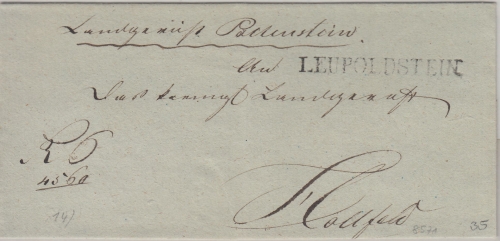 Landgericht Pottenstein
An LEUPOLDSTEIN
Das königl Landgericht
R S
4560
Hollfeld
14)
35